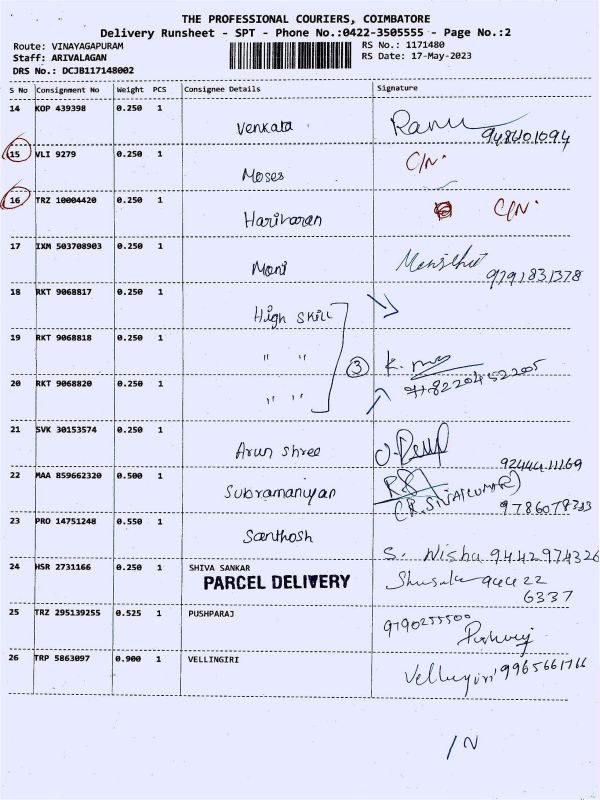 THE PROFESSIONAL COURIERS, COIMBATORE
Delivery Runsheet - SPT - Phone No.:0422-3505555 - Page No.:2
Route: VINAYAGAPURAM RS No.: 1171480
Staff: ARIVALAGAN RS Date: 17-May-2023
DRS No.: DCJB117148002
S No Consignment No Weight PCS Consignee Details Signature
14 KOP 439398 0.250 1 Venkata Ramu 948401094
15 VLI 9279 0.250 1 Moses C/N.
16 TRZ 10004420 0.250 1 Hariharan C/N.
17 IXM 503708903 0.250 1 Mani 9791831378
18 RKT 9068817 0.250 1 High skill
19 RKT 9068818 0.250 1 " " 3 K.
20 RKT 9068820 0.250 1 " " 918220452205
21 SVK 30153574 0.250 1 Arun shree
22 MAA 859662320 0.500 1 Subramaniyan (R. SIVAKUMAR)
23 PRO 14751248 0.550 1 Santhosh S. Nisha 9442974326
24 HSR 2731166 0.250 1 SHIVA SANKAR
PARCEL DELIVERY 6337
25 TRZ 295139255 0.525 1 PUSHPARAJ 9790255500
26 TRP 5863097 0.900 1 VELLINGIRI Vellingiri
/N